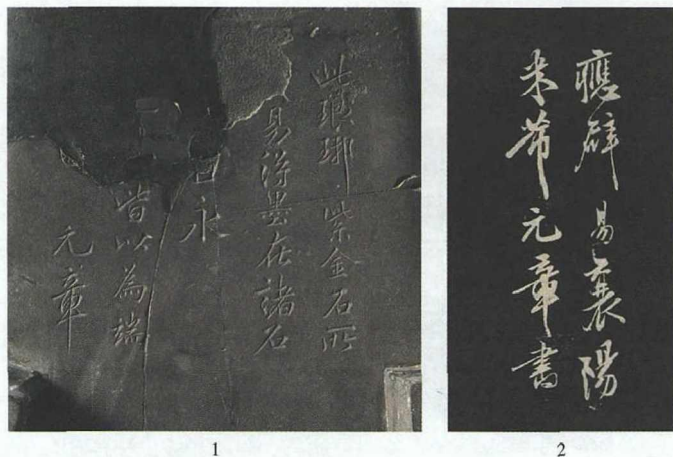 此瑯琊紫金石所
易得墨在諸石
自永
皆以為端
元章
1
應辟 易襄陽
米芾元章書
2